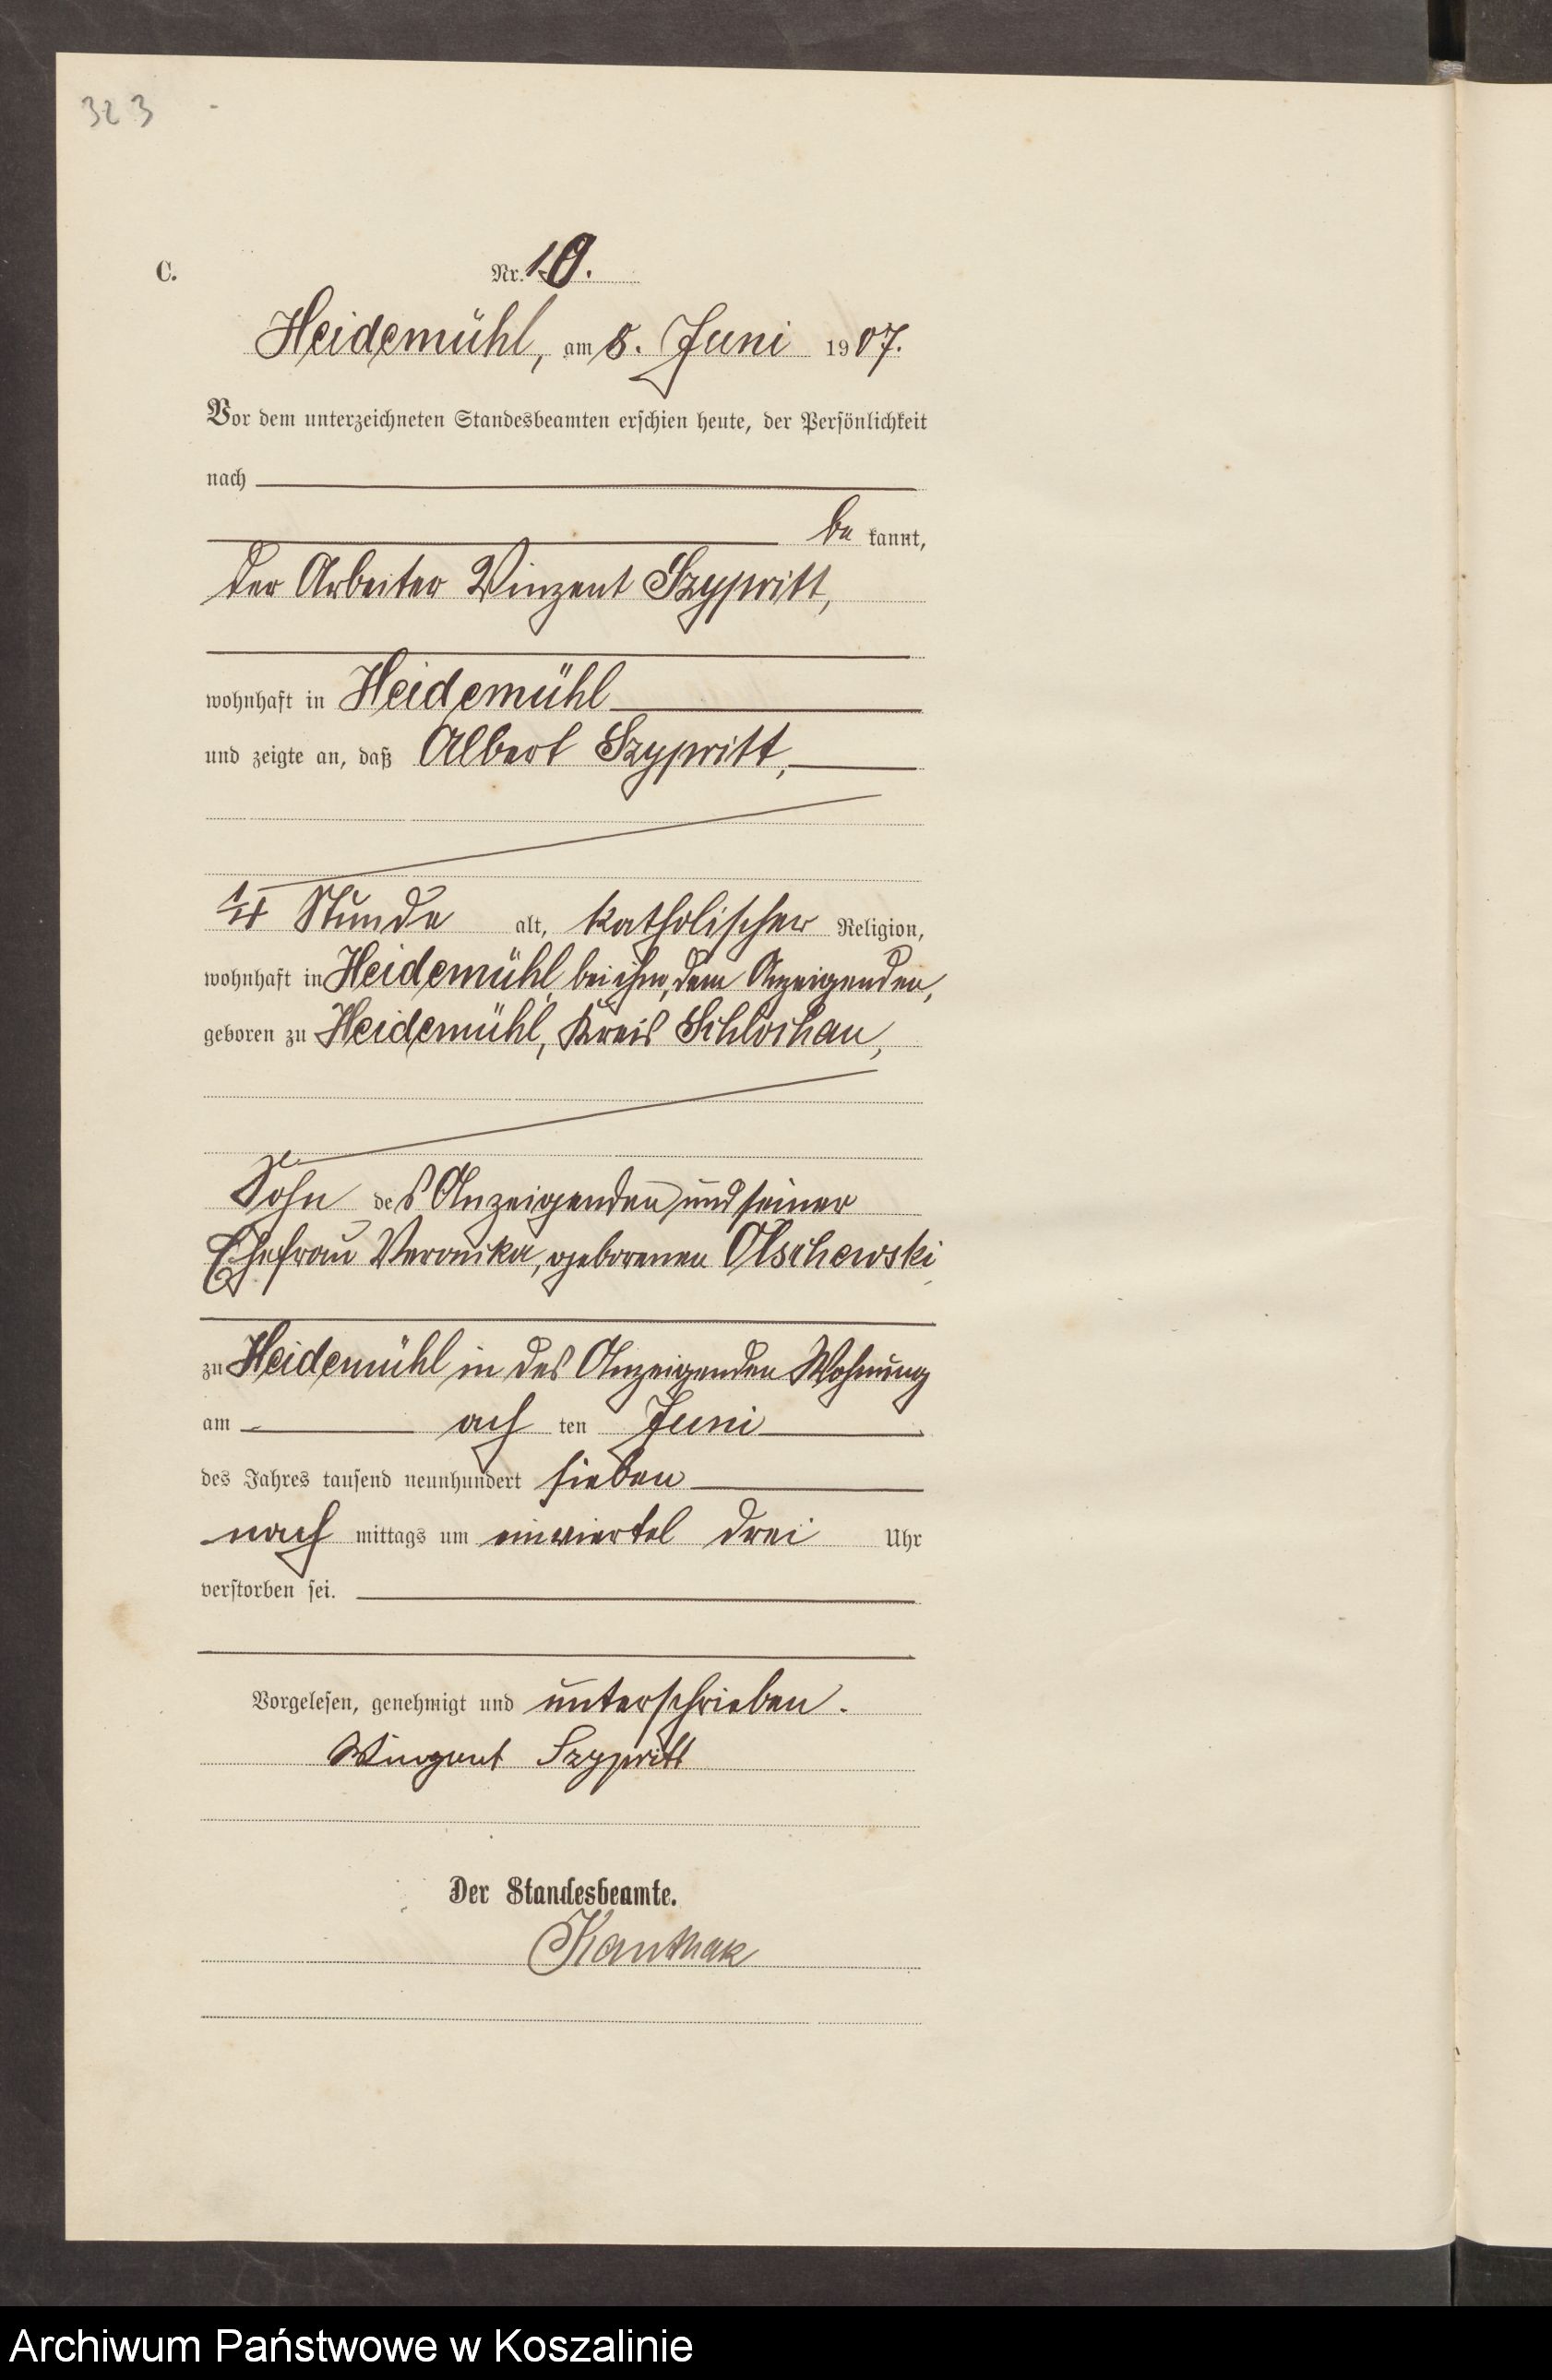 323
C.
Nr. 10.
Heidemühl, am 8. Juni 1907.
Vor dem unterzeichneten Standesbeamten erschien heute, der Persönlichkeit
nach
be kannt,
der Arbeiter Vinzent Szypritt,
wohnhaft in Heidemühl
und zeigte an, daß Albert Szypritt,
1/4 Stunde alt, katholischer Religion,
wohnhaft in Heidemühl bei ihm, dem Anzeigenden,
geboren zu Heidemühl, Kreis Schlochau,
Sohn des Anzeigenden und seiner
Ehefrau Veronika, geborenen Olschewski
zu Heidemühl in des Anzeigenden Wohnung
am ach ten Juni
des Jahres tausend neunhundert sieben
nach mittags um einviertel drei Uhr
verstorben sei.
Vorgelesen, genehmigt und unterschrieben.
Winzent Szypritt
Der Standesbeamte.
Kanthak
Archiwum Państwowe w Koszalinie